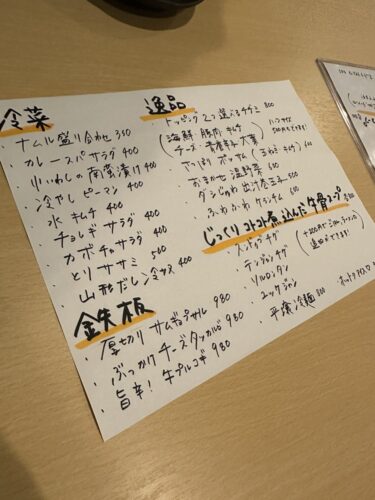 冷菜
・ナムル盛り合わせ 350
・カレースパサラダ 400
・小いわしの南蛮漬け 400
・冷やしピーマン 400
・水キムチ 400
・チョレギサラダ 400
・カボチャサラダ 400
・とりササミ 500
・山形だし冷奴 400
鉄板
・厚切りサムギョプサル 980
・ぶっかけチーズタッカルビ 980
・旨辛!牛プルコギ 980
逸品
・トッピング2つ選べるチヂミ 800
(海鮮 豚肉 キムチ
チーズ 青唐辛子 大葉
ハーフサイズ
500円もできます)
・さっぱりポッサム(玉ねぎキムチ) 600
・おまかせ温野菜 600
・ぐらじゅわ出汁巻玉子 500
・ふわふわケランチム 600
じっくりコトコト煮込んだ牛骨スープ 800
・スンドゥブチゲ
・テンジャンチゲ
・ソルロンタン
・ユッケジャン
・平壌冷麺 800